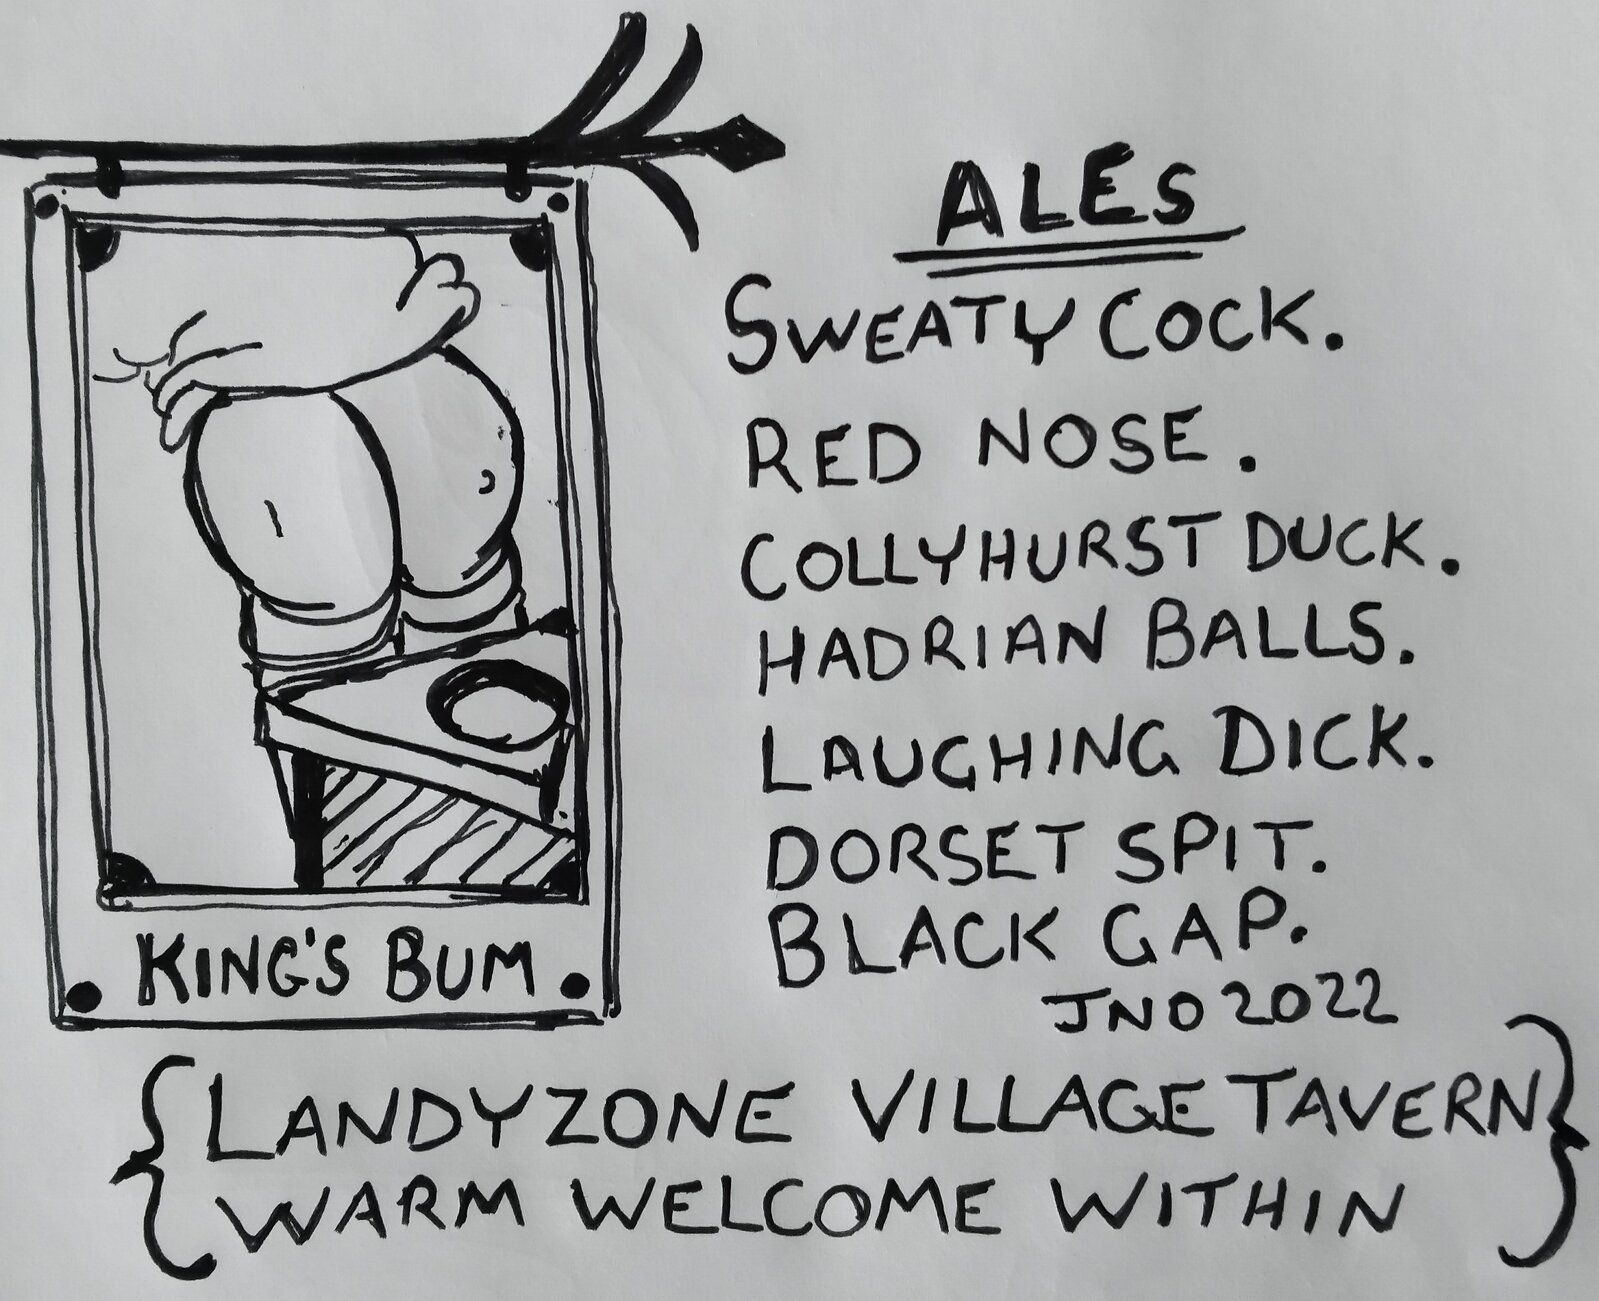 ALES
SWEATY COCK.
RED NOSE.
COLLYHURST DUCK.
HADRIAN BALLS.
LAUGHING DICK.
DORSET SPIT.
BLACK GAP.
JNO 2022
KING'S BUM
{LANDYZONE VILLAGE TAVERN}
WARM WELCOME WITHIN